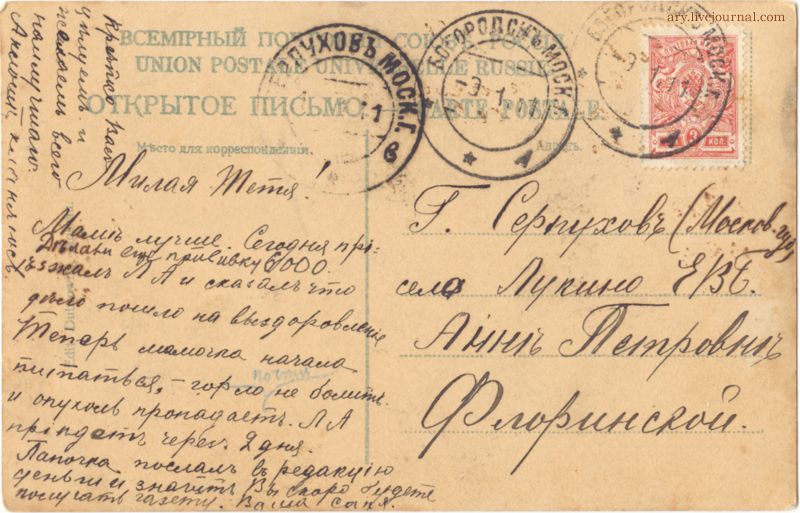 ary.livejournal.com
ВСЕМІРНЫЙ ПОЧ СОЮЗЪ РОССІЯ
UNION POSTALE UNIVERSELLE RUSSIE
ОТКРЫТОЕ ПИСЬМО CARTE POSTALE
Мѣсто для корреспонденціи.
Адресъ.
СЕРПУХОВЪ МОСК.Г.
БОГОРОДСКЪ МОСК
БОГОРОДСКЪ МОСК.Г.
3 КОП.
Крѣпко Васъ
цѣлуемъ и
желаемъ всего
наилучшаго.
Милая Тетя!
Мамѣ лучше. Сегодня прі-
Дѣлали еще прививку 6000.
ѣзжалъ Л А и сказалъ что
дѣло пошло на выздоровленіе
Теперь мамочка начала
питаться, – горло не болитъ
и опухоль пропадаетъ. Л А
пріѣдетъ черезъ 2 дня.
Папочка послалъ въ редакцію
деньги и значитъ Вы скоро будете
получать газету. Ваша Саня.
Г. Серпуховъ (Москов. губ.)
села Лукино ЕВБ.
Аннѣ Петровнѣ
Флоринской.